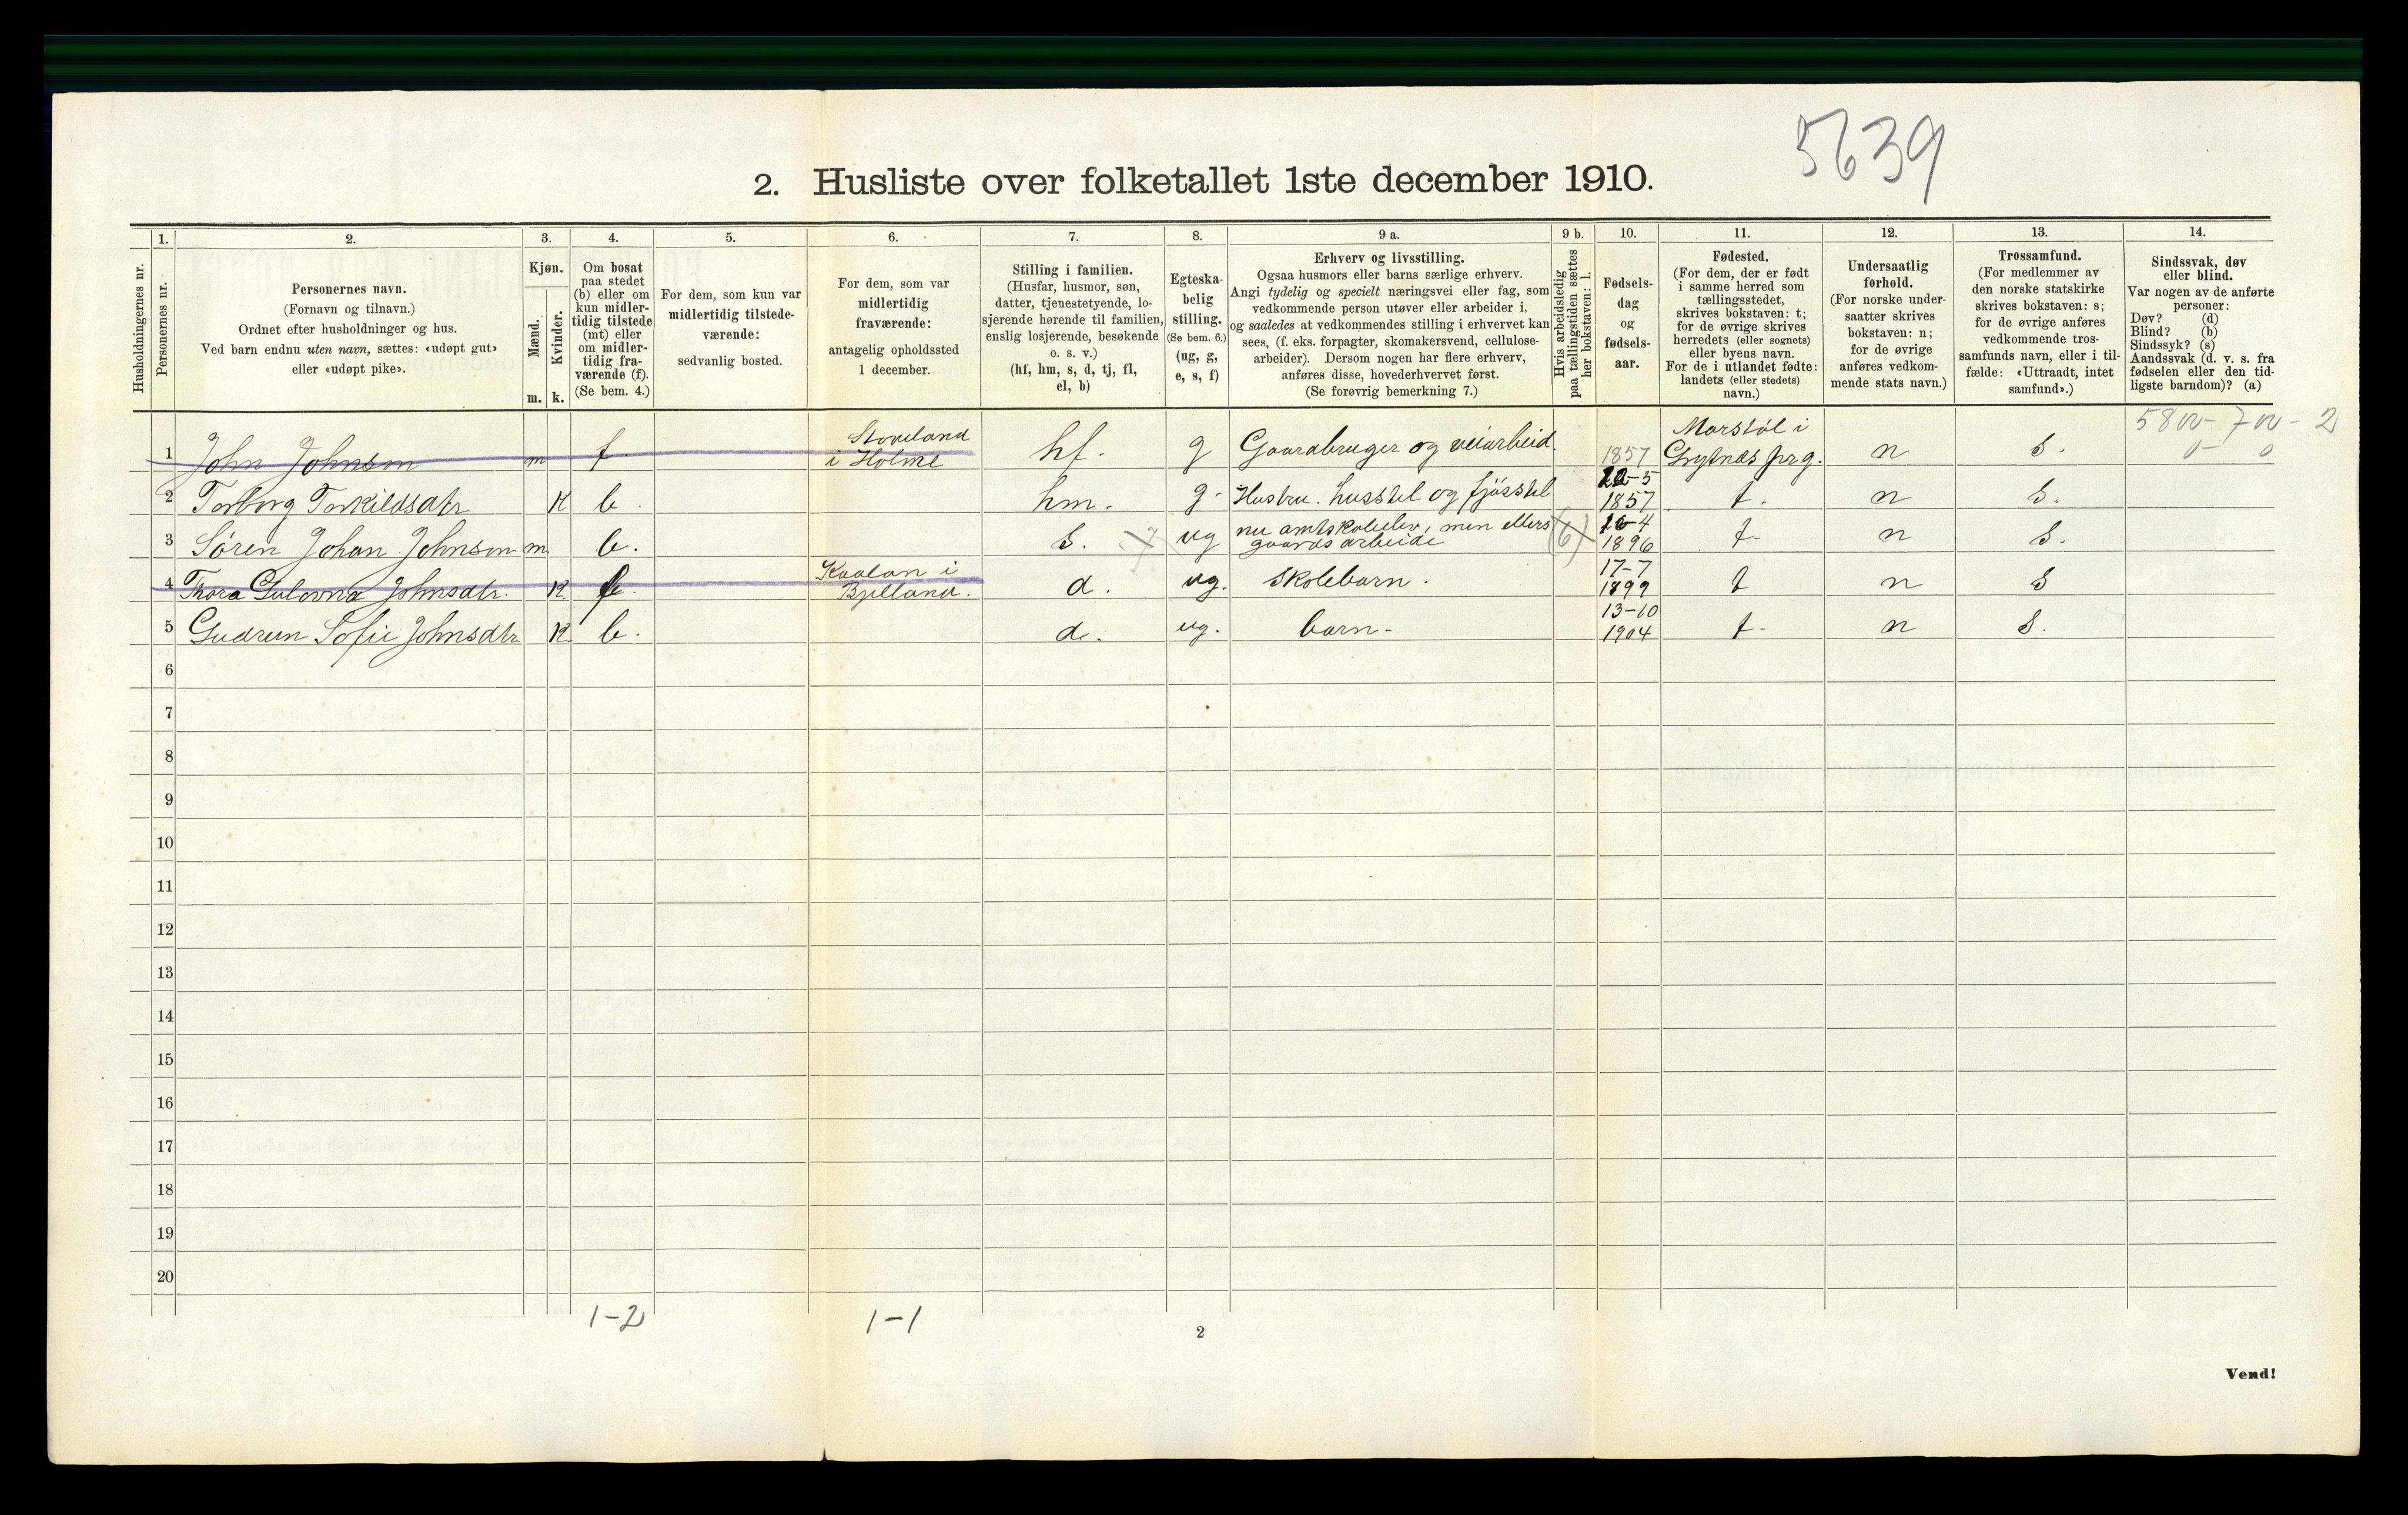 5639
2. Husliste over folketallet 1ste december 1910.
Husholdningernes nr.
1.
Personernes nr.
2.
Personernes navn.
(Fornavn og tilnavn.)
Ordnet efter husholdninger og hus.
Ved barn endnu uten navn, sættes: «udøpt gut»
eller «udøpt pike».
3.
Kjøn.
Mænd.
Kvinder.
m.
k.
4.
Om bosat
paa stedet
(b) eller om
kun midler-
tidig tilstede
(mt) eller
om midler-
tidig fra-
værende (f).
(Se bem. 4.)
5.
For dem, som kun var
midlertidig tilstede-
værende:
sedvanlig bosted.
6.
For dem, som var
midlertidig
fraværende:
antagelig opholdssted
1 december.
7.
Stilling i familien.
(Husfar, husmor, søn,
datter, tjenestetyende, lo-
sjerende hørende til familien,
enslig losjerende, besøkende
o. s. v.)
(hf, hm, s, d, tj, fl,
el, b)
8.
Egteska-
belig
stilling.
(Se bem. 6.)
(ug, g,
e, s, f)
9 a.
Erhverv og livsstilling.
Ogsaa husmors eller barns særlige erhverv.
Angi tydelig og specielt næringsvei eller fag, som
vedkommende person utøver eller arbeider i,
og saaledes at vedkommendes stilling i erhvervet kan
sees, (f. eks. forpagter, skomakersvend, cellulose-
arbeider). Dersom nogen har flere erhverv,
anføres disse, hovederhvervet først.
(Se forøvrig bemerkning 7.)
9 b.
Hvis arbeidsledig
paa tællingstiden sættes
her bokstaven: l.
10.
Fødsels-
dag
og
fødsels-
aar.
11.
Fødested.
(For dem, der er født
i samme herred som
tællingsstedet,
skrives bokstaven: t;
for de øvrige skrives
herredets (eller sognets)
eller byens navn.
For de i utlandet fødte:
landets (eller stedets)
navn.)
12.
Undersaatlig
forhold.
(For norske under-
saatter skrives
bokstaven: n;
for de øvrige
anføres vedkom-
mende stats navn.)
13.
Trossamfund.
(For medlemmer av
den norske statskirke
skrives bokstaven: s;
for de øvrige anføres
vedkommende tros-
samfunds navn, eller i til-
fælde: «Uttraadt, intet
samfund».)
14.
Sindssvak, døv
eller blind.
Var nogen av de anførte
personer:
Døv? (d)
Blind? (b)
Sindssyk? (s)
Aandssvak (d. v. s. fra
fødselen eller den tid-
ligste barndom)? (a)
5800-700-2
0-0
1 John Johnson m f. Stoveland i Holme hf. g Gaardbruger og veiarbeid. 1857 n s.
2 Torborg Torkildsdtr K b. hm. g. Hustru. husstel og fjøsstel 1857 t. n s.
3 Søren Johan Johnson m b. s. ug nu amtskoleelev, men ellers gaardsarbeide (6) 16-4 1896 t. n s.
4 Johnsdtr. K f. i Bjelland. d. ug. Skolebarn. 17-7 1899 t n s
5 Gudrun Sofie Johnsdtr K b. d. ug. barn. 13-10 1904 t. n s.
6
7
8
9
10
11
12
13
14
15
16
17
18
19
20
1-2
1-1
2
Vend!